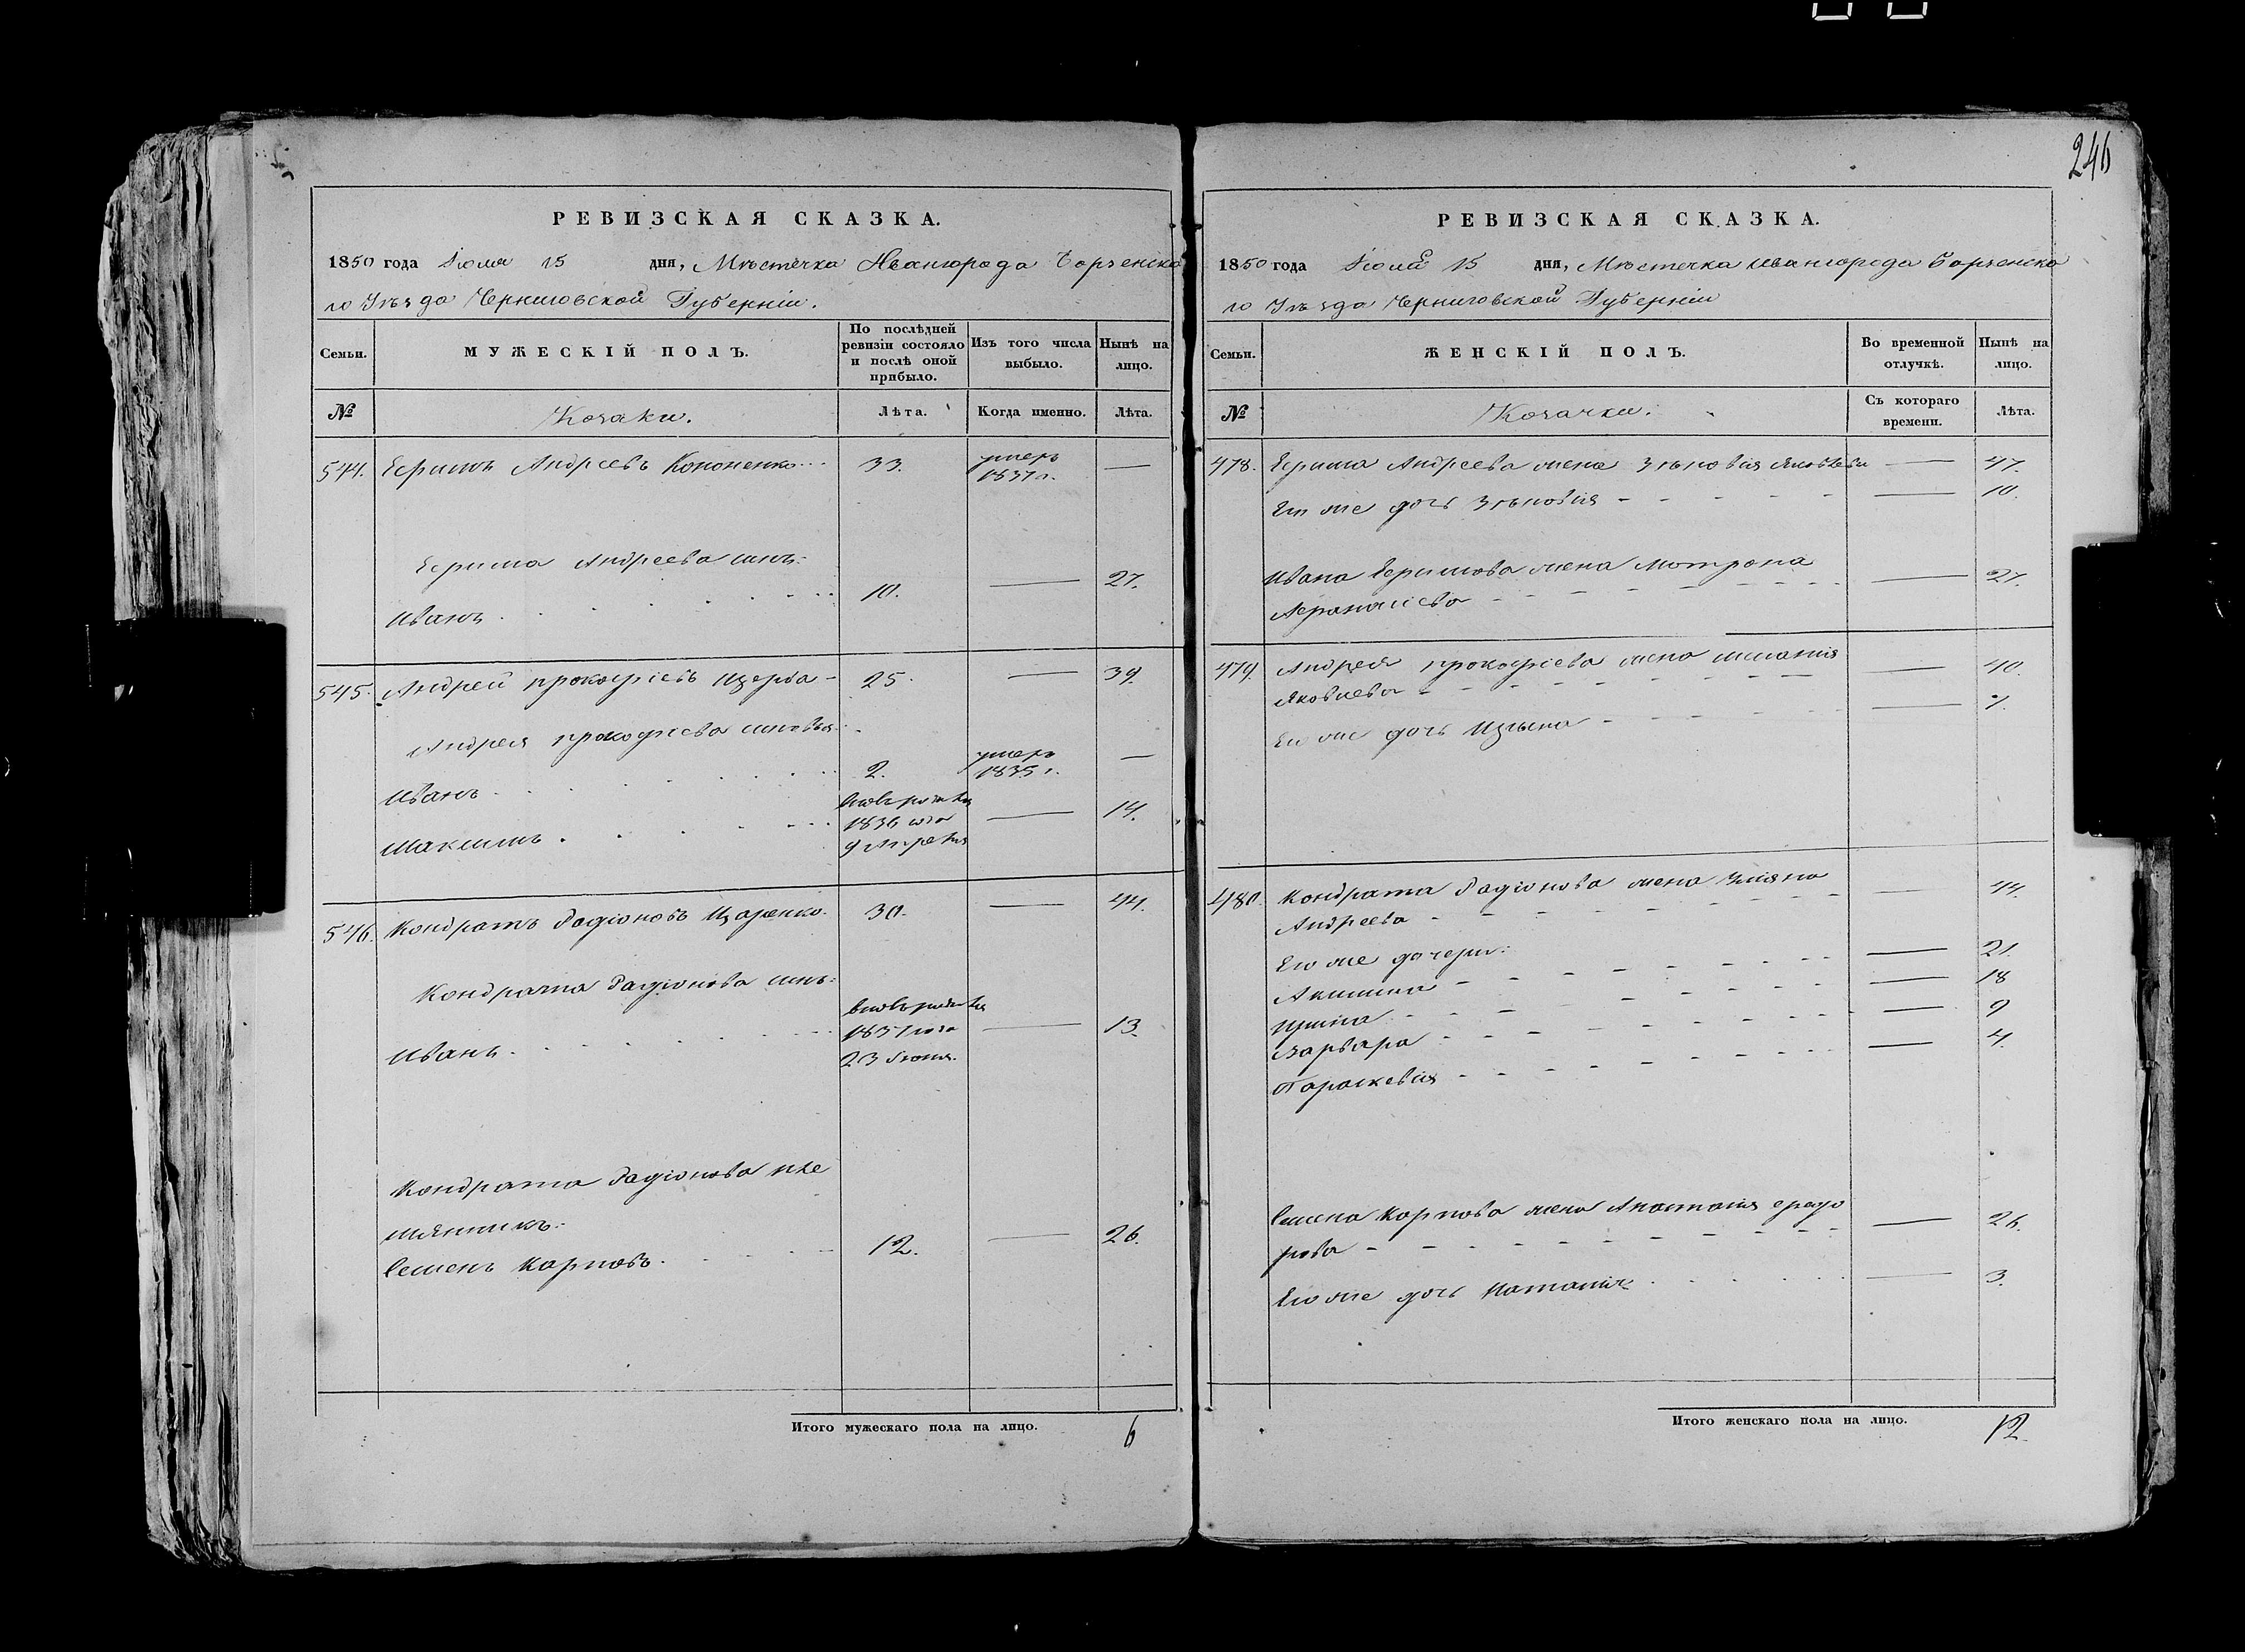 246
РЕВИЗСКАЯ СКАЗКА.
1850 года Іюля 15 дня, Мѣстечка Ивангорода Борзенска
го Уѣзда Черниговской Губерніи.
Семьи.
МУЖЕСКІЙ ПОЛЪ.
По послѣдней ревизіи состояло и послѣ оной прибыло.
Изъ того числа выбыло.
Нынѣ на лицо.
№
Козаки.
Лѣта.
Когда именно.
Лѣта.
544. Ефимъ Андреевъ Кононенко 33. умеръ 1837 г. —
Ефима Андреева сынъ:
Иванъ 10. — 27.
545. Андрей Прокофіевъ Щерба 25. — 39.
Андрея Прокофіева сыновья:
Иванъ 2. умеръ 1835 г. —
Максимъ 1836 года 9 Апреля — 14.
546. Кондратъ Радіоновъ 30. — 44.
Кондрата Радіонова сынъ:
Иванъ 1837 года 23 Іюня. — 13.
Кондрата Радіонова пле
мянникъ:
Семенъ Карповъ. 12. — 26.
Итого мужескаго пола на лицо. 6
РЕВИЗСКАЯ СКАЗКА.
1850 года Іюля 15 дня, Мѣстечка Ивангорода Борзенска
го Уѣзда Черниговской Губерніи
Семьи.
ЖЕНСКІЙ ПОЛЪ.
Во временной отлучкѣ.
Нынѣ на лицо.
№
Козачки.
Съ котораго времени.
Лѣта.
478. Ефима Андреева жена Зѣновія Яковлева — 47.
Его же дочь Зѣновія — 10.
Ивана Ефимова жена Мотрона
Афанасіева — 27.
479. Андрея Прокофіева жена
Яковлева — 40.
Его же дочь — 7.
480. Кондрата Радіонова жена Уліяна
Андреева — 44.
Его же дочери:
Акилина — 21.
Ирина — 18
Варвара — 9
Параскевія — 4.
Семена Карпова жена Анастасія Федо
рова — 26.
Его же дочь Наталія — 3.
Итого женскаго пола на лицо. 12.